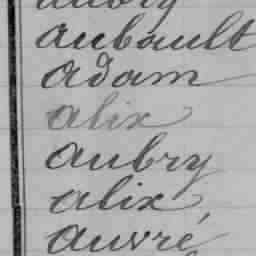 aubry
aubault
adam
alix
aubry
alix,
auvré